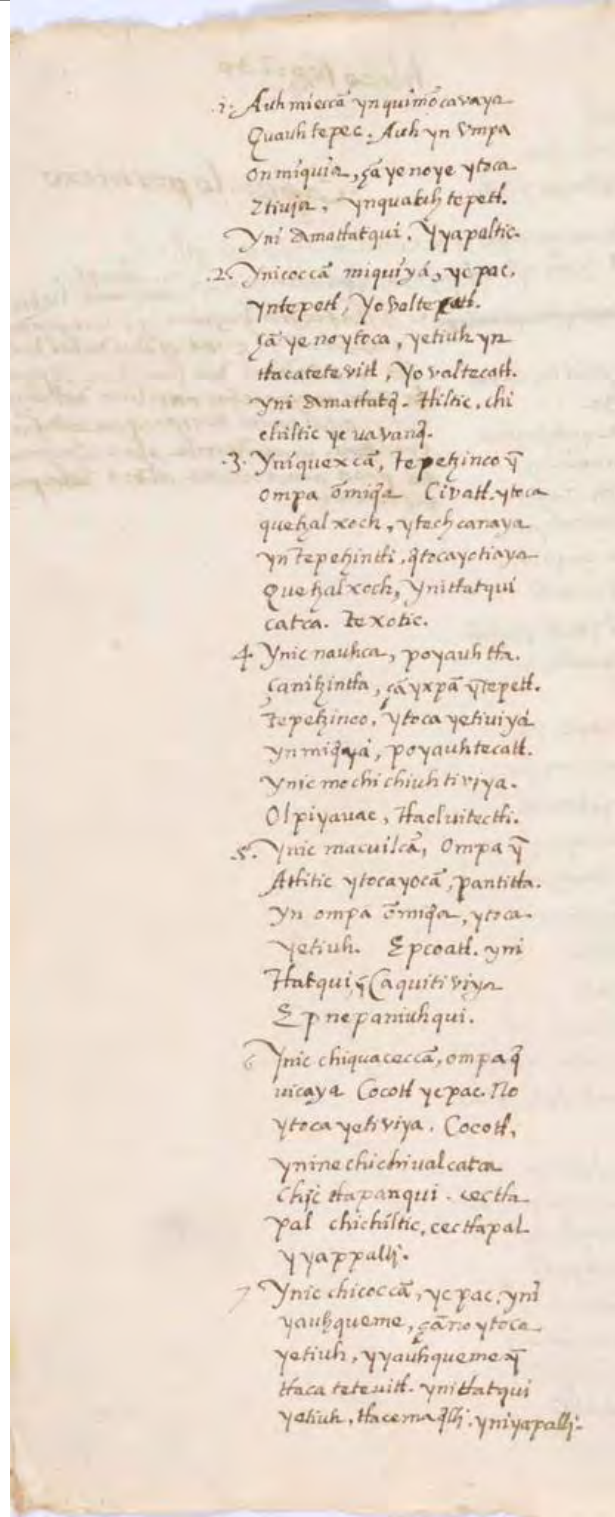 .1. Auh mieccã ynquimõcavaya
Quauhtepec. Auh yn vmpa
onmiquia, çã ye noye ytoca
ztiuja, ynquauhtepetl.
Yni Amatlatqui, Yyapaltic.
.2. Ynicoccã miquiyá, ycpac,
yntepetl, Yovaltepetl.
çã ye noytoca, yetiuh yn
tlacatetevitl, Yovaltecatl.
yni Amatlatq̃. tliltic, chi
chiltic ye vavanq̃.
.3. Yniquexcã, Tepetzinco ỹ
ompa õmiq̃a Civatl. ytoca
quetzalxoch, ytechcanaya
ynTepetzintli, q̃tocayotiaya
Quetzalxoch, Ynitlatqui
catca. Texotic.
4. Ynic nauhca, poyauhtla.
çanitzintla, çã yxpã ỹtepetl.
Tepetzinco, ytoca yetiuiyá
ynmiq̃yá, poyauhtecatl.
ynic mochichiuhtiviya.
Olpiyauac, tlaoluitectli.
.5. Ynic macuilcã, Ompa ỹ
Atlitic ytocayocã, pantitla.
yn ompa õmiq̃a, ytoca
yetiuh. Epcoatl. yni
tlatqui, ỹ caquitiviya
Epnepaniuhqui.
6 Ynic chiquaceccã, ompa q̃
uicaya Cocotl ycpac. No
ytoca yetiviya. Cocotl,
yninechichivalcatca
chictlapanqui. cectla
pal chichiltic, cectlapal
yyappalli.
7 Ynic chicoccã, ycpac, ynĩ
yauhqueme, çãno ytoca
yetiuh, yyauhqueme ỹ
tlacatetevitl. ynitlatqui
yetiuh, tlacemaq̃lli. yniyapalli.